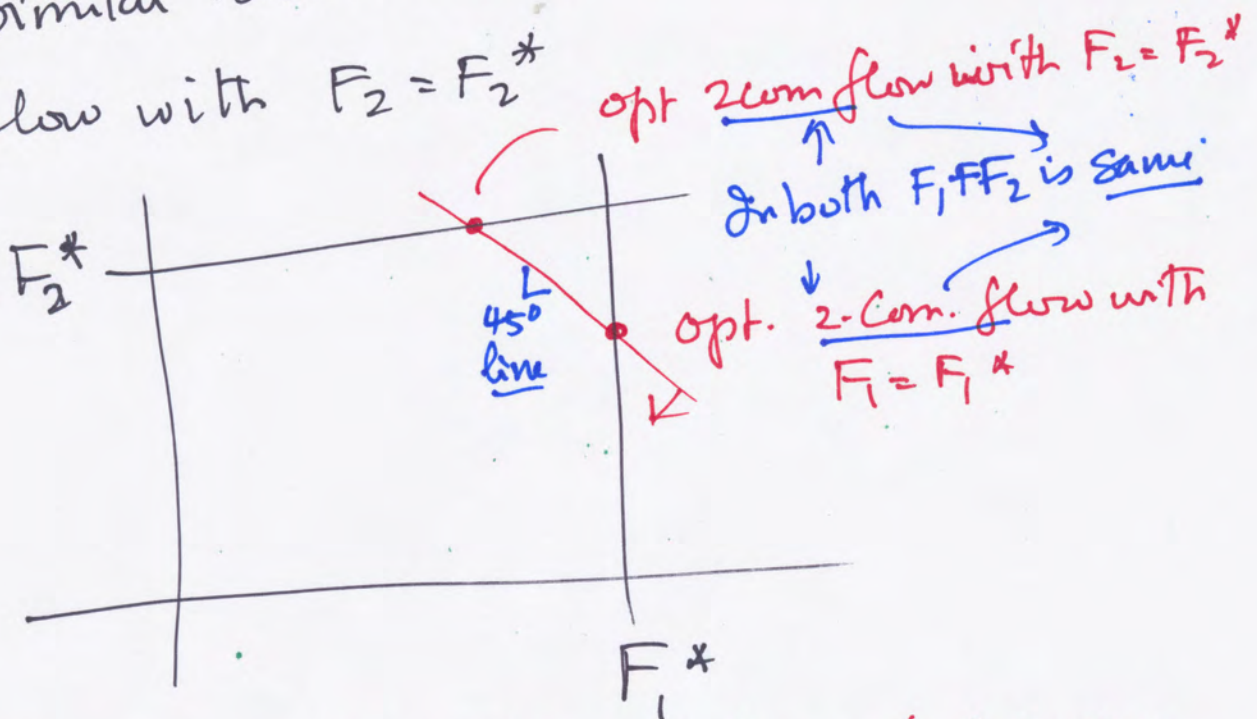 low with F₂ = F₂*
opt 2com flow with F₂ = F₂*
In both F₁+F₂ is same
F₂*
45°
line
opt. 2-Com. flow with
F₁ = F₁*
F₁*